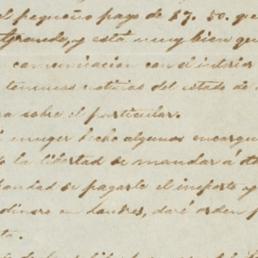 el pequeño pago de $7.50. que
grande, y está muy bien que
comunicacion con el interior
tenemos noticias del estado de
sobre el particular.
muger hecho algunos encargu
la libertad de mandar á
bondad de pagarle el importe y
dinero en Londres, daré orden p